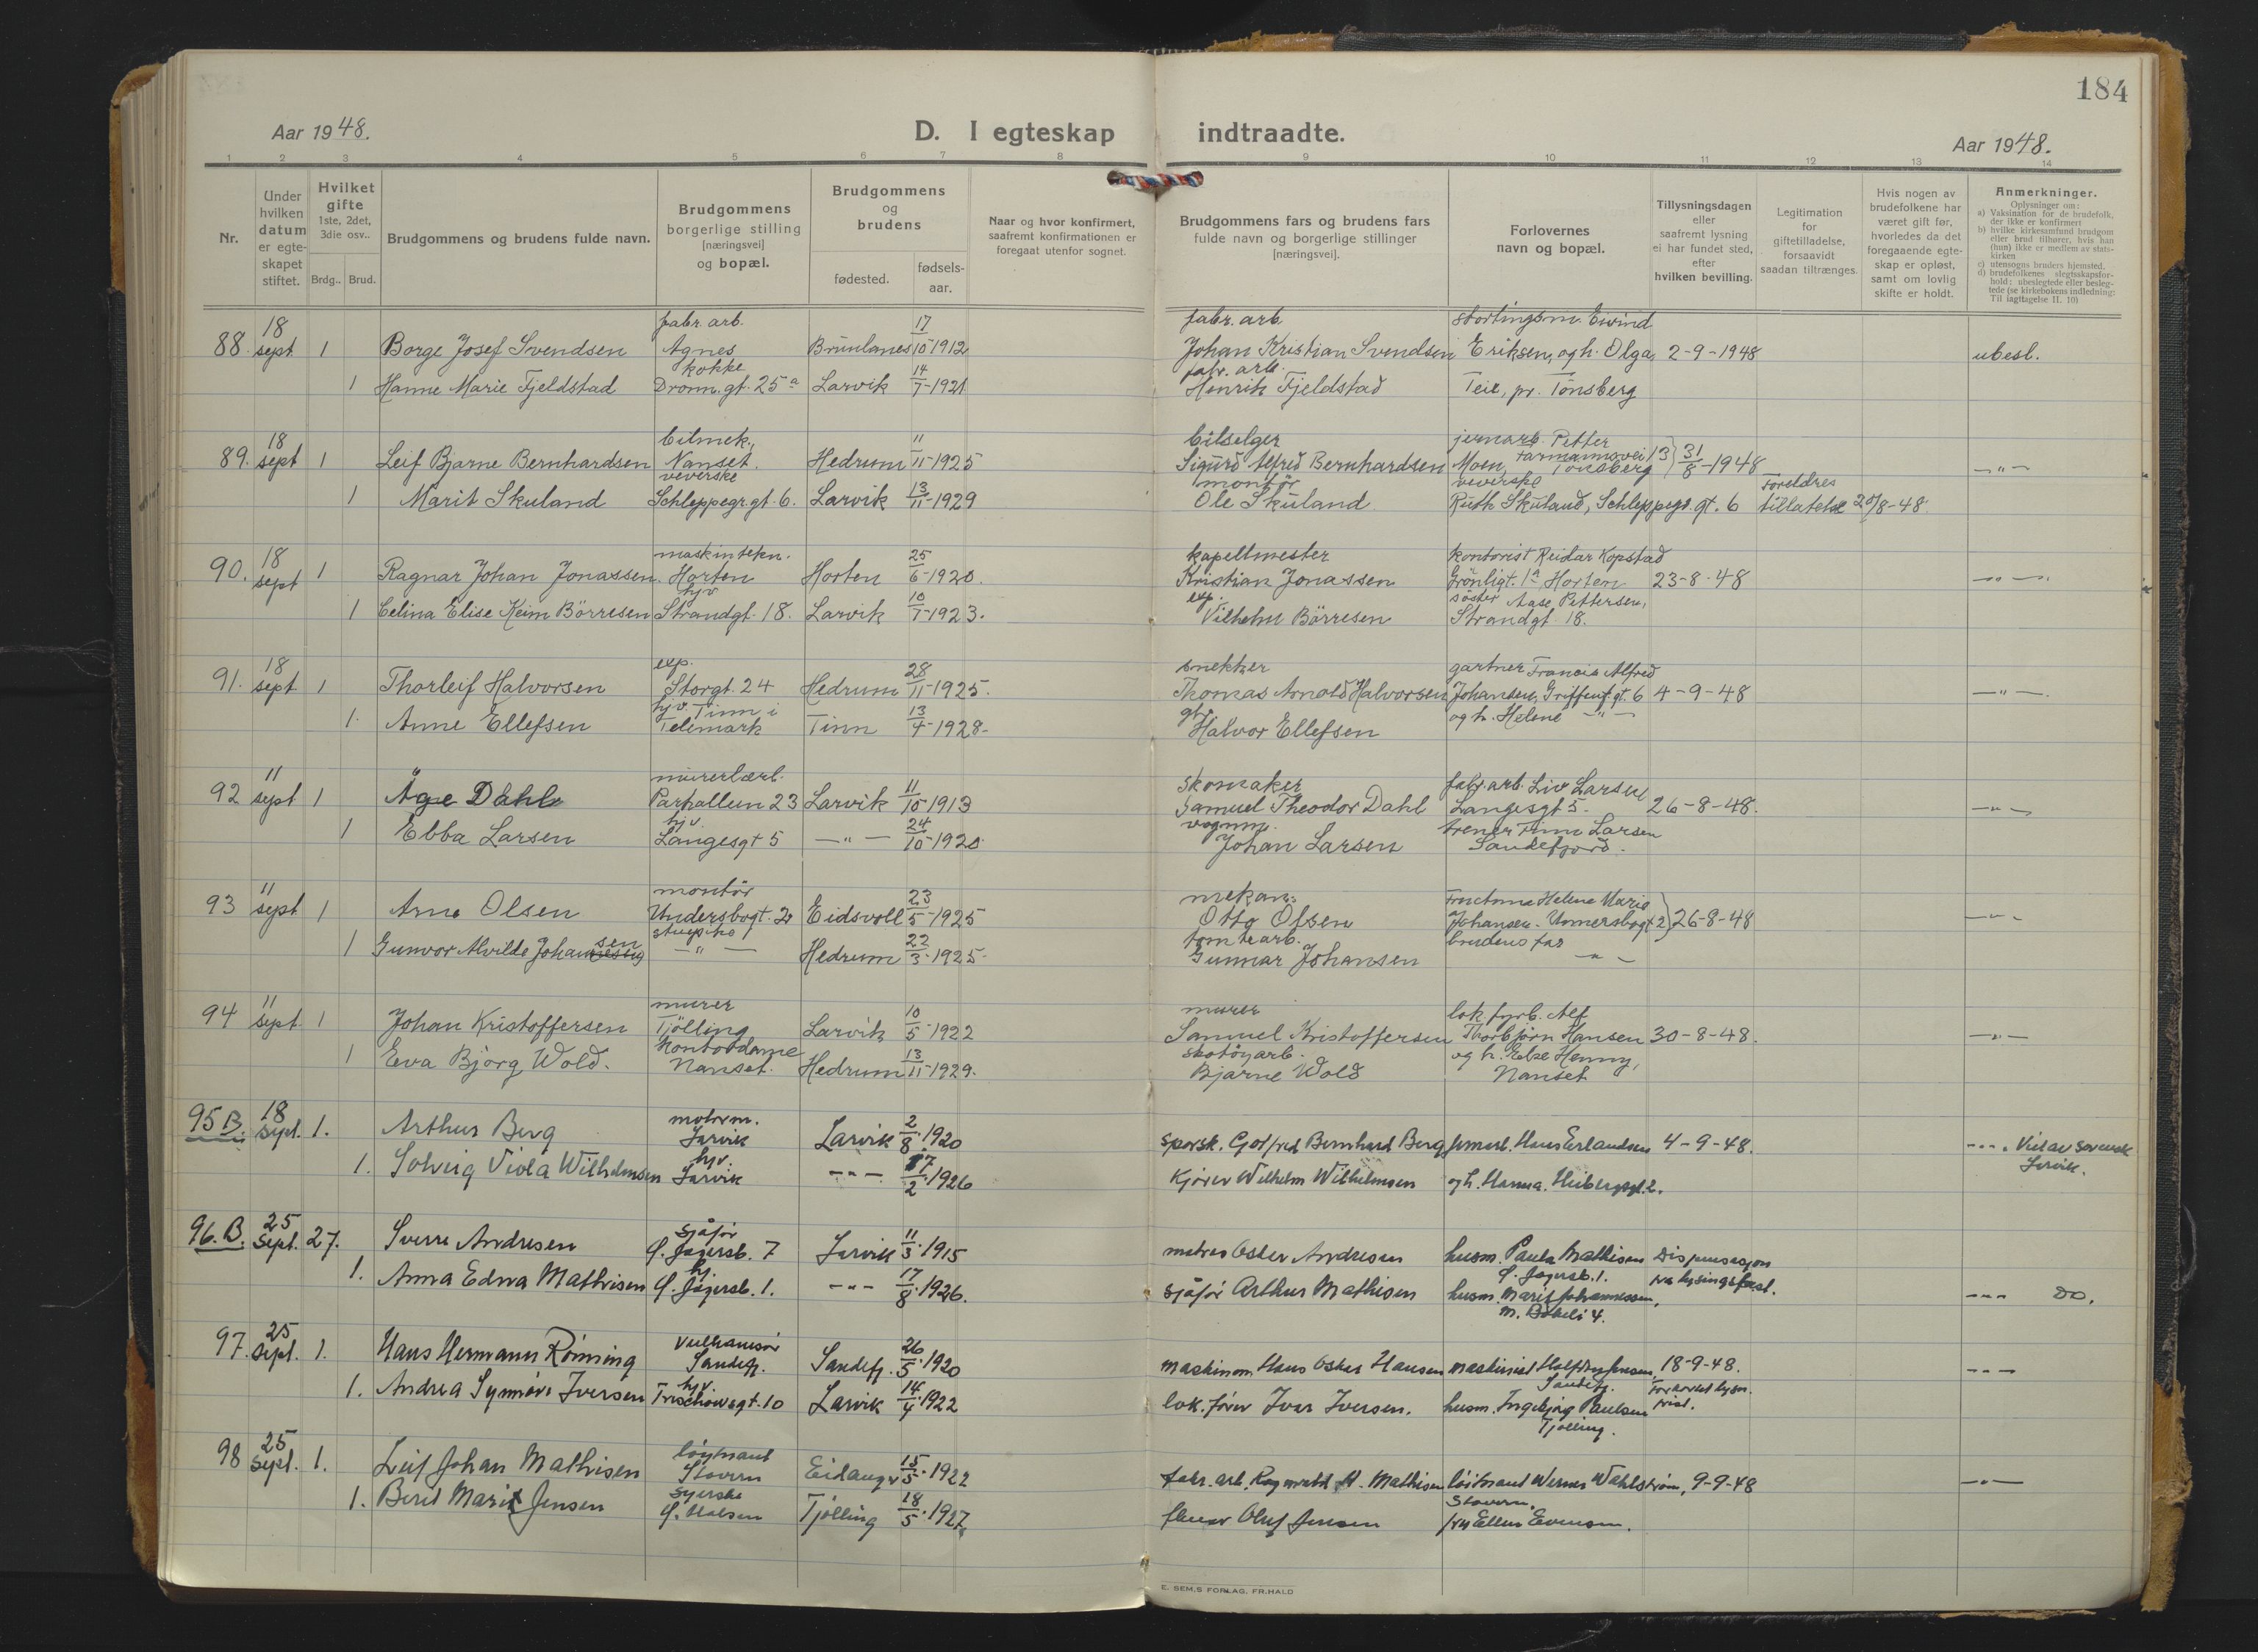 184
Aar 1948.
D. I egteskap indtraadte.
Aar 1948.
1 2 3 4 5 6 7 8 9 10 11 12 13 14
Nr.
Under hvilken datum er egte-skapet stiftet.
Hvilket gifte 1ste, 2det, 3die osv..
Brdg.. Brud.
Brudgommens og brudens fulde navn.
Brudgommens borgerlige stilling [næringsvei] og bopæl.
Brudgommens og brudens
fødested.
fødsels-aar.
Naar og hvor konfirmert, saafremt konfirmationen er foregaat utenfor sognet.
Brudgommens fars og brudens fars fulde navn og borgerlige stillinger [næringsvei].
Forlovernes navn og bopæl.
Tillysningsdagen eller saafremt lysning ei har fundet sted, efter hvilken bevilling.
Legitimation for giftetilladelse, forsaavidt saadan tiltrænges.
Hvis nogen av brudefolkene har været gift før, hvorledes da det foregaaende egte-skap er opløst, samt om lovlig skifte er holdt.
Anmerkninger.
Oplysninger om:
a) Vaksination for de brudefolk, der ikke er konfirmert
b) hvilke kirkesamfund brudgom eller brud tilhører, hvis han (hun) ikke er medlem av stats-kirken
c) utensogns bruders hjemsted.
d) brudefolkenes slegtsskapsfor-hold: ubeslegtede eller besleg-tede (se kirkebokens indledning: Til iagttagelse II. 10)
18 fabr. arb. 17 fabr. arb stortingsm. Eivind
88. sept 1 Borge Josef Svendsen Agnes Brunlanes 10-1912 Johan Kristian Svendsen Eriksen, og h. Olga, 2-9-1948 ubesl.
kokke 14 fabr. arb.
1 Hanne Marie Fjeldstad Dronn.gt. 25a Larvik 7-1921 Henrik Fjeldstad Teie, pr. Tönsberg
18 bilmek., 11 bilselger jernarb. Petter
89. sept 1 Leif Bjarne Bernhardsen Nanset. Hedrum 11-1925 Sigurd Alfred Bernhardsen Moen, Farmannsvei 13 Tönsberg 31/8-1948 -"-
veverske 13 montör veverske Foreldres
1 Marit Skuland Schleppegr.gt. 6. Larvik 11-1929 Ole Skuland Ruth Skuland, Schleppegr. gt. 6 tillatelse 20/8-48.
18 maskintekn. 25 kapellmester kontorist Reidar Kopstad
90. sept 1 Ragnar Johan Jonassen. Horten Horten 6-1920. Kristian Jonassen Grönligt. 1a Horten 23-8-48 -"-
hjv 10 exp. söster Aase Pettersen,
1 Celina Elise Keim Börresen Strandgt. 18. Larvik 7-1923. Vilhelm Börresen Strandgt. 18.
18 exp. 28 snekker gartner Francis Alfred
91. sept 1 Thorleif Halvorsen Storgt. 24 Hedrum 11-1925. Thomas Arnold Halvorsen Johansen, Griffenf.gt. 6 4-9-48 -"-
hjv. Tinn i 13 gbr og h. Helene -"-
1. Anne Ellefsen Telemark Tinn 4-1928- Halvor Ellefsen
11 murerlærl. 11 skomaker fabr. arb. Liv Larsen
92 sept 1 Åge Dahl Parkalleen 23 Larvik 10-1913 Samuel Theodor Dahl Langesgt 5. 26-8-48. -"-
hjv. 24 vognm. trener Finn Larsen
1 Ebba Larsen Langesgt 5 -"- 10-1920 Johan Larsen Sandefjord.
11 montör 23 mekan. Helene Marie
93 sept 1 Arne Olsen Undersbogt. 2 Eidsvoll 5-1925 Otto Olsen Johansen. Unnersbogt 2 26-8-48 -"-
22 tomtearb. brudens far
1 Gunvor Alvilde Johansen -"- Hedrum 3-1925- Gunnar Johansen -"-
11 murer 10 murer lok. fyrb. Alf
94 sept. 1 Johan Kristoffersen Tjölling Larvik 5-1922 Samuel Kristoffersen Thorbjörn Hansen 30-8-48. -"-
kontordame 13 skotöyarb. og h. Else Henny,
1 Eva Bjørg Wold. Nanset. Hedrum 11-1929. Bjarne Wold Nanset
18 motorm. 2
95 B. Sept. 1. Arthur Berg Larvik Larvik 8.1920 Gotfred Bernhard Berg Hans Erlandsen 4-9-48. -"-. Larvik.
hjv. 17
1. Solveig Viola Wilhelmsen Larvik -"- 2.1926 Kjører Wilhelm Wilhelmsen og h. Hanna. Heibergsgt. 2.
25 Sjåfør 11
96. B. Sept. 27. Sverre Andresen Ø. Jegersb. 7 Larvik 3.1915 Oskar Andresen husm. Paula Mathisen Dispensasjon
hj. 17 Ø. Jegersb. 1. fra lysingsfrist.
1. Anna Edna Mathisen Ø. Jegersb. 1. -"- 8.1926. Sjåfør Arthur Mathisen husm. Marie Johannessen, -"- Do.
M. Bøkeli 4.
25 Vulkanisør 26
97. Sept. 1. Hans Hermann Rønning Sandefj. Sandefj. 5.1920 maskinm. Hans Oskar Hansen maskinist 18-9-48. -"-
hjv. 14 Sandefj. Forkortet lysn.
1. Andrea Synnøve Iversen Treschowsgt. 10 Larvik 4.1922 lok. fører Ivar Iversen. husm. Ingebjørg Paulsen frist.
Tjølling.
25 løytnant 15
98 Sept. 1. Leif Johan Mathisen Stavern Eidanger 5.1922 fabr. arb. Mathisen løitnant Werner Wahlstrøm, 9-9-48 -"-
Syerske 18 Stavern.
1. Berit Marit Jensen Ø. Halsen Tjølling 5.1927. Oluf Jensen fru Ellen Evensen.
E. SEM,S FORLAG, FR.HALD